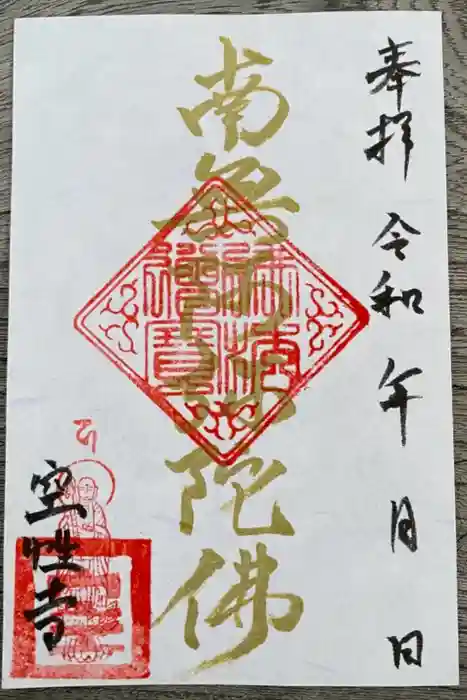 奉拝 令和 年 月 日
南無阿弥陀佛
佛法僧寶
空性寺